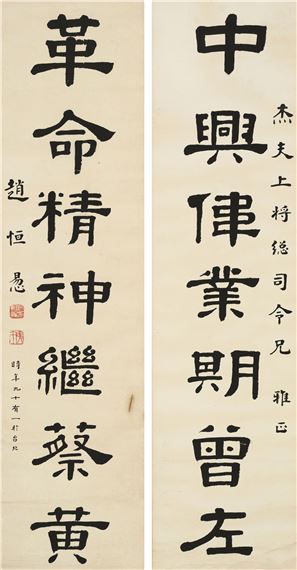 杰夫上将總司令兄 雅正
中興偉業期曾左
革命精神繼蔡黃
趙恒惖
時年九十有一於台北